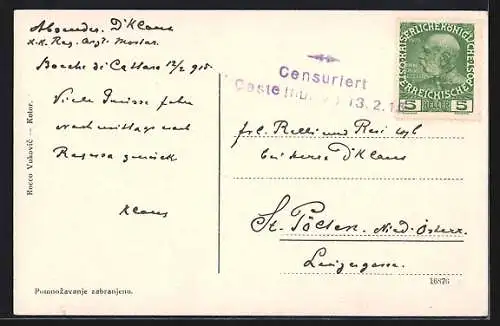 Absender. Dr Klaus
k.k. Reg. Arzt. Mostar.
Bocche di Cattaro 12/2 915.
Viele Grüsse fahre
nachmittags nach
Ragusa zurück
Klaus
Rocco Vuković — Kotor.
Pomnožavanje zabranjeno.
Censuriert
Castelnuovo 13.2.15
KAISERLICHE KÖNIGLICHE
ÖSTERREICHISCHE POST
5 HELLER 5
frl. Relli und Resi
bei Herrn Dr Klaus
St. Pölten. Nied. Österr.
Linzergasse.
16876